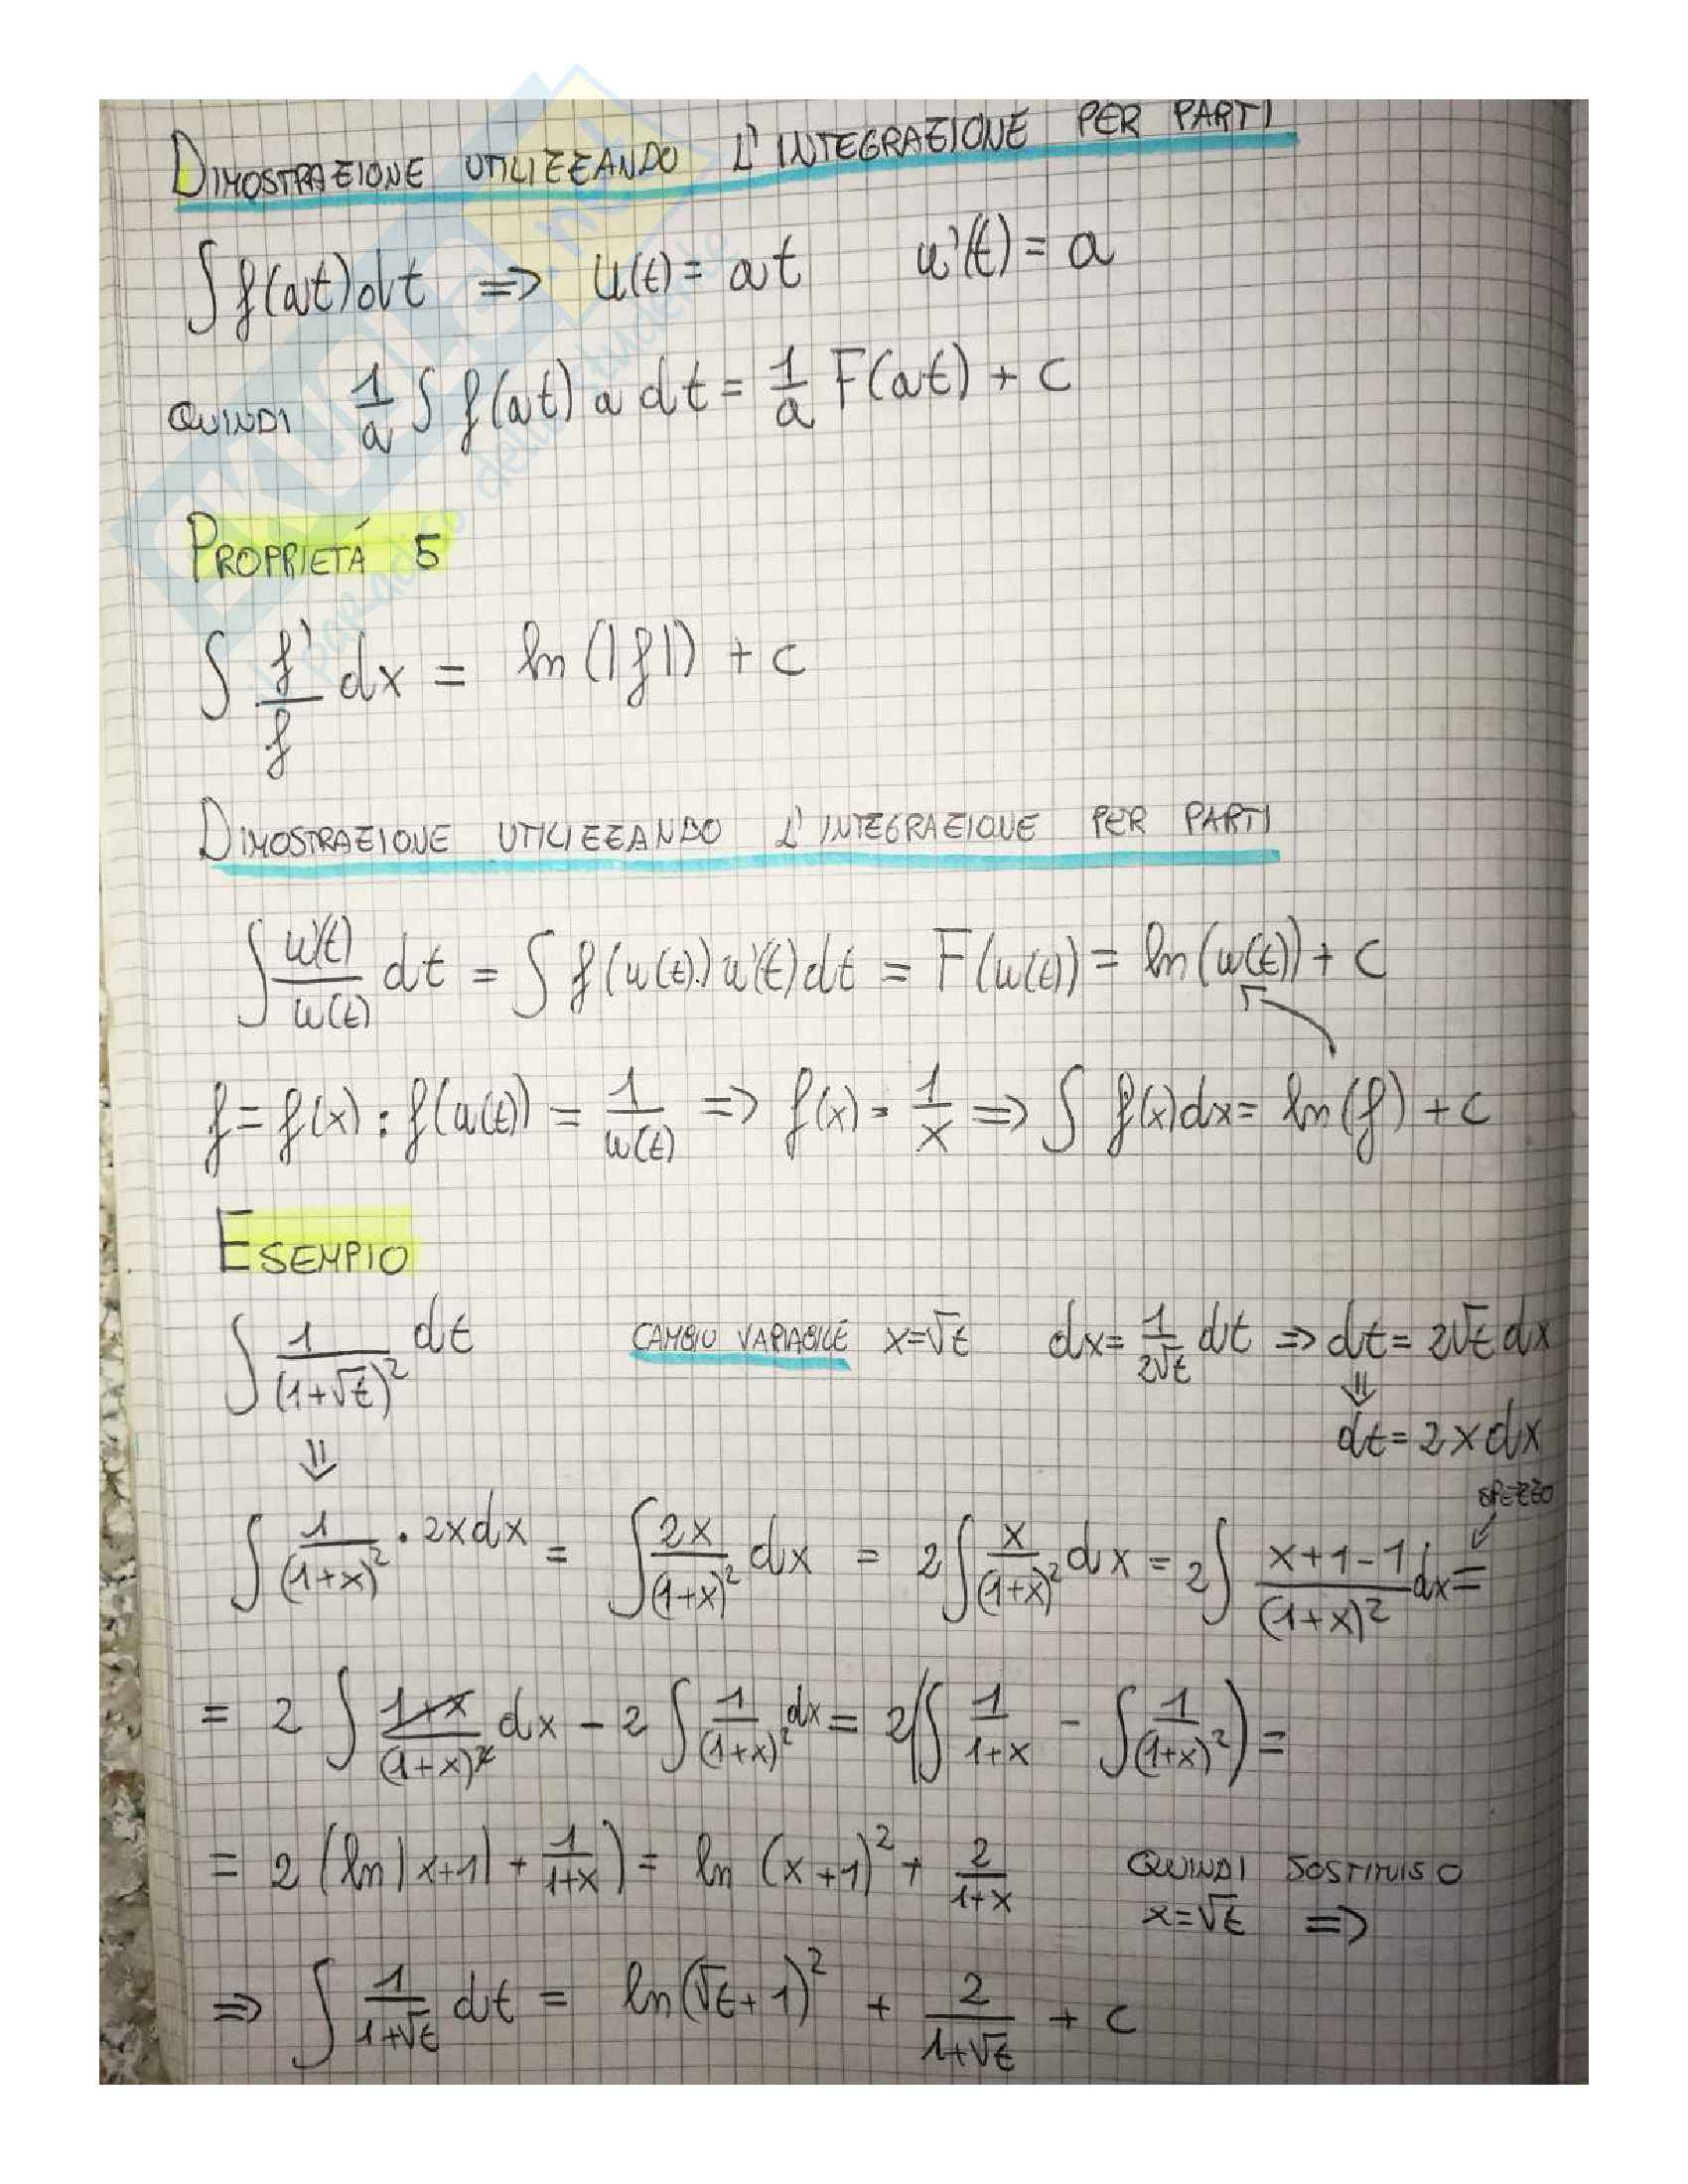 DIMOSTRAZIONE UTILIZZANDO L'INTEGRAZIONE PER PARTI
∫ f(at)dt ⇒ u(t) = at u'(t) = a
QUINDI 1/a ∫ f(at) a dt = 1/a F(at) + c
PROPRIETÁ 5
∫ f'/f dx = ln(|f|) + c
DIMOSTRAZIONE UTILIZZANDO L'INTEGRAZIONE PER PARTI
∫ u'(t)/u(t) dt = ∫ f(u(t)) u'(t) dt = F(u(t)) = ln(u(t)) + c
f = f(x) : f(u(t)) = 1/u(t) ⇒ f(x) = 1/x ⇒ ∫ f(x)dx = ln(f) + c
ESEMPIO
∫ 1/(1+√t)² dt CAMBIO VARIABILE x=√t dx = 1/2√t dt ⇒ dt = 2√t dx
⇓ dt = 2x dx
⇓ SPEZZO
∫ 1/(1+x)² · 2x dx = ∫ 2x/(1+x)² dx = 2∫ x/(1+x)² dx = 2∫ x+1-1/(1+x)² dx =
= 2 ∫ 1+x/(1+x)² dx - 2 ∫ 1/(1+x)² dx = 2(∫ 1/1+x - ∫ 1/(1+x)²) =
= 2 (ln|x+1| + 1/1+x) = ln (x+1)² + 2/1+x QUINDI SOSTITUISO
x=√t ⇒
⇒ ∫ 1/1+√t dt = ln(√t+1)² + 2/1+√t + c